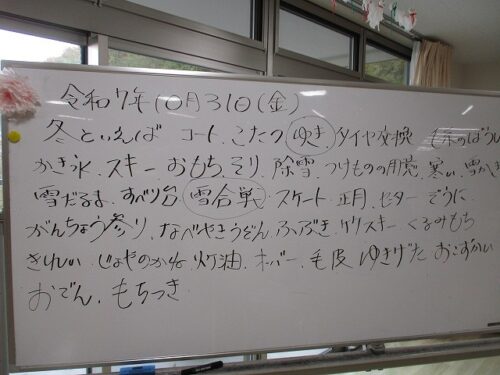 令和7年10月31日(金)
冬といえば コート、こたつ ゆき タイヤ交換 毛糸のぼうし
かき氷、スキー、おもち、そり、除雪、つけものの用意、寒い、雪かき
雪だるま、すべり台 雪合戦、スケート、正月、セーター ぞうに
がんちょう参り、なべやきうどん、ふぶき、竹スキー、くるみもち
きれい、じょやのかね 灯油、オーバー、毛皮 ゆきげた おこずかい
おでん、もちつき